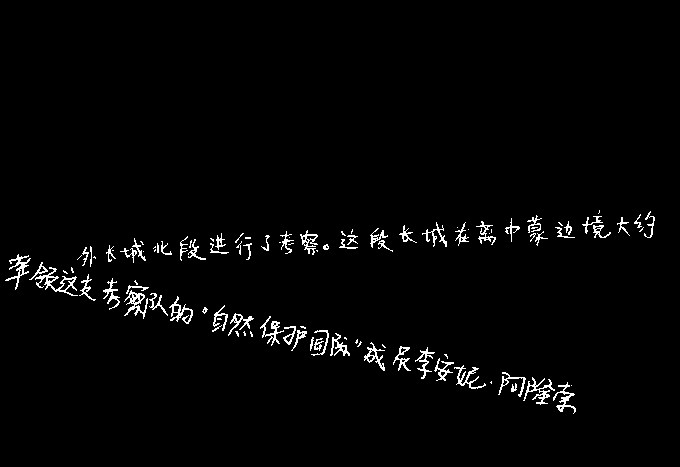 外长城北段进行了考察。这段长城在离中蒙边境大约
率领这支考察队的“自然保护团队”成员李安妮·阿隆索